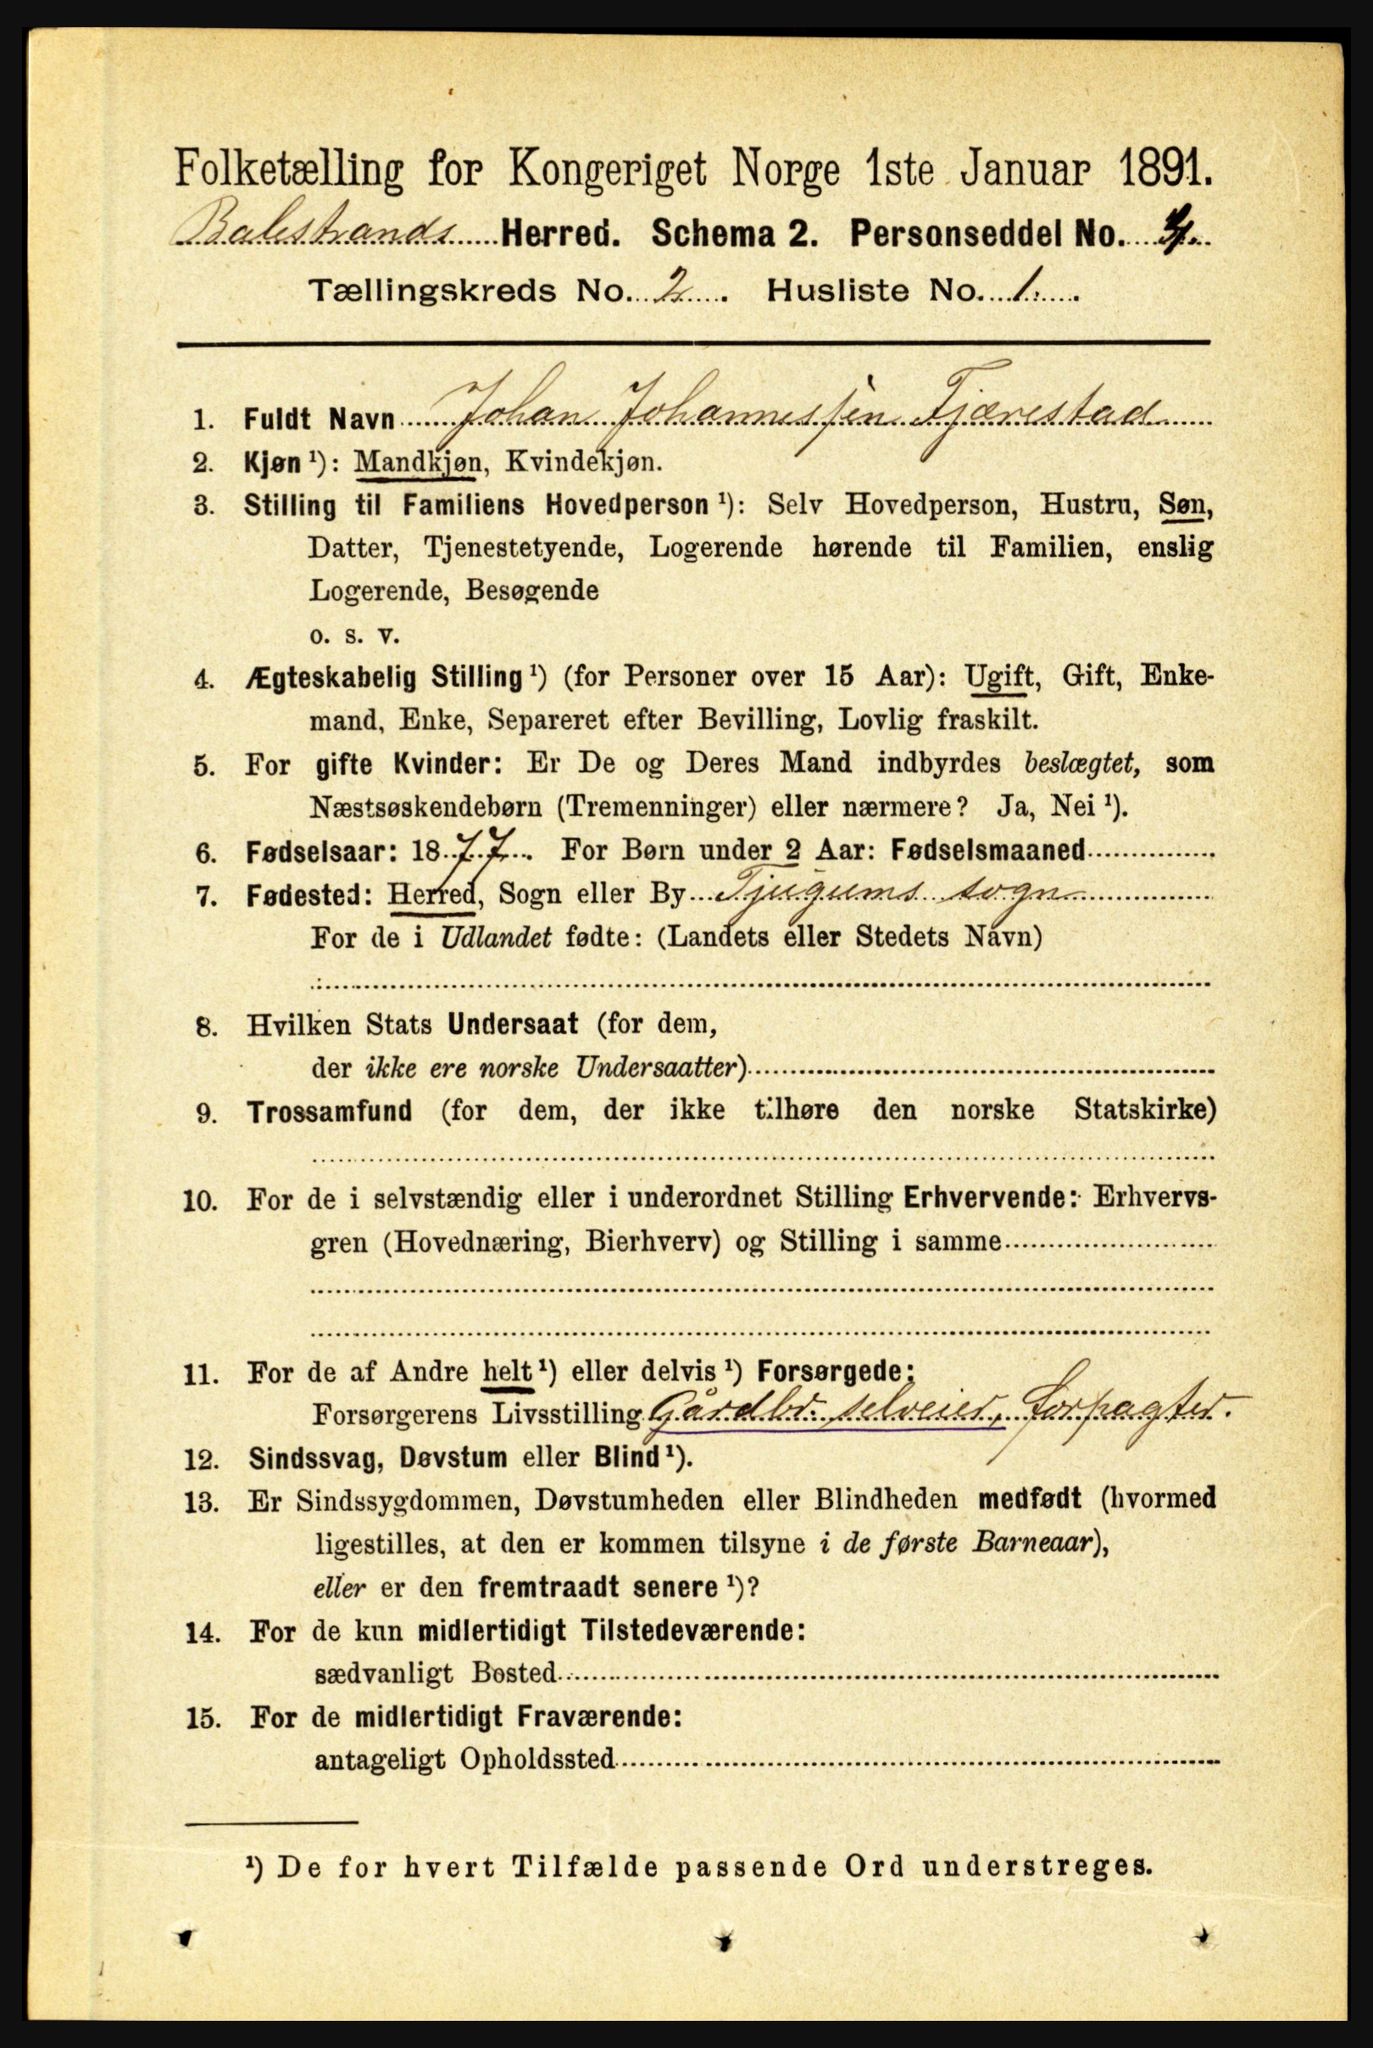 Folketælling for Kongeriget Norge 1ste Januar 1891.
Balestrands Herred. Schema 2. Personseddel No. 4.
Tællingskreds No. 2. Husliste No. 1.
1. Fuldt Navn Johan Johannessen Fjærestad
2. Kjøn ¹): Mandkjøn, Kvindekjøn.
3. Stilling til Familiens Hovedperson ¹): Selv Hovedperson, Hustru, Søn,
Datter, Tjenestetyende, Logerende hørende til Familien, enslig
Logerende, Besøgende
o. s. v.
4. Ægteskabelig Stilling ¹) (for Personer over 15 Aar): Ugift, Gift, Enke-
mand, Enke, Separeret efter Bevilling, Lovlig fraskilt.
5. For gifte Kvinder: Er De og Deres Mand indbyrdes beslægtet, som
Næstsøskendebørn (Tremenninger) eller nærmere? Ja, Nei ¹).
6. Fødselsaar: 1877. For Børn under 2 Aar: Fødselsmaaned
7. Fødested: Herred, Sogn eller By Tjugums sogn
For de i Udlandet fødte: (Landets eller Stedets Navn)
8. Hvilken Stats Undersaat (for dem,
der ikke ere norske Undersaatter)
9. Trossamfund (for dem, der ikke tilhøre den norske Statskirke)
10. For de i selvstændig eller i underordnet Stilling Erhvervende: Erhvervs-
gren (Hovednæring, Bierhverv) og Stilling i samme
11. For de af Andre helt ¹) eller delvis ¹) Forsørgede:
Forsørgerens Livsstilling Gårdbr. selveier, forpagter.
12. Sindssvag, Døvstum eller Blind ¹).
13. Er Sindssygdommen, Døvstumheden eller Blindheden medfødt (hvormed
ligestilles, at den er kommen tilsyne i de første Barneaar),
eller er den fremtraadt senere ¹)?
14. For de kun midlertidigt Tilstedeværende:
sædvanligt Bosted
15. For de midlertidigt Fraværende:
antageligt Opholdssted
¹) De for hvert Tilfælde passende Ord understreges.